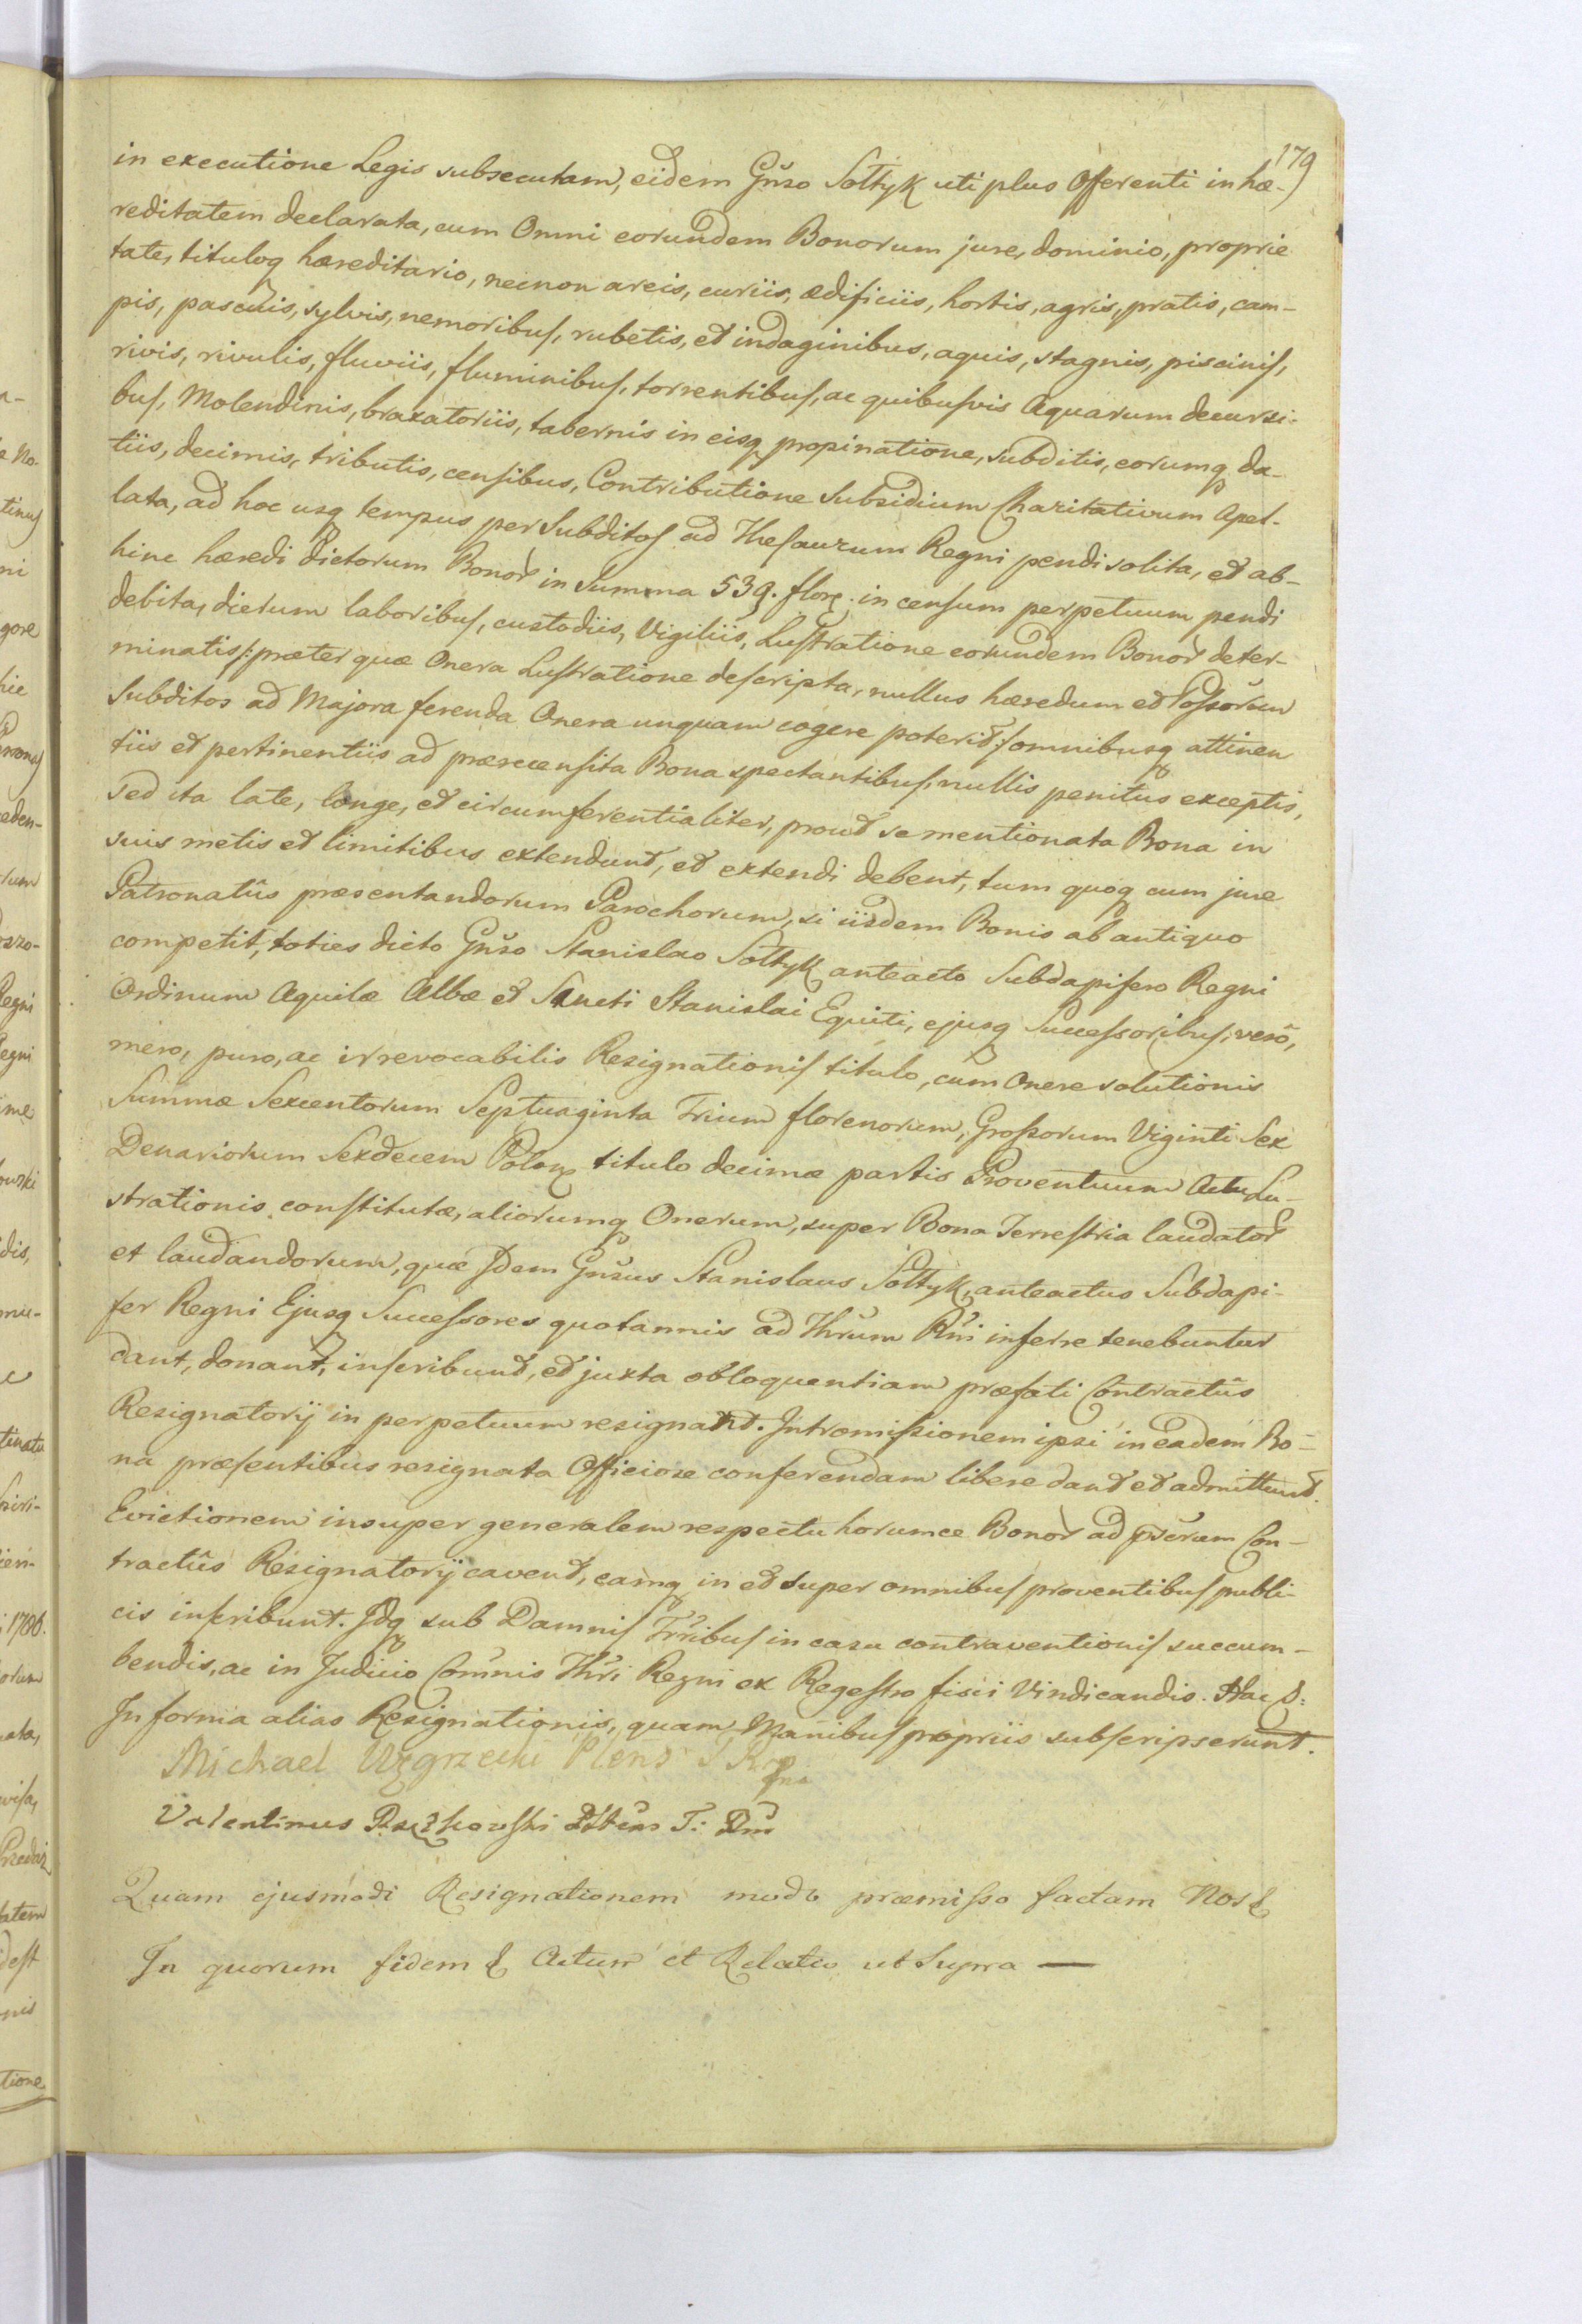 179
in executione Legis subsecutam, eidem Gnŝo Sołtyk uti plus Offerenti in hæ-
reditatem declarata, cum Omni eorundem Bonorum jure, dominio, proprie
tate, tituloq hæreditario, necnon areis, curiis, ædificiis, hortis, agris, pratis, cam-
pis, pascuis, sylvis, nemoribus, rubetis, et indaginibus, aquis, stagnis, piscinis,
rivis, rivulis, fluviis, fluminibus, torrentibus, ac quibusvis Aquarum decursi-
bus, Molendinis, braxatoriis, tabernis in eisq propinatione, subditis, eorumq da-
tiis, decimis, tributis, censibus, Contributione Subsidium Charitativum Apel-
lata, ad hoc usq tempus per Subditos ad Thesaurum Regni pendi solita, et ab-
hinc hæredi dictorum Bonor in Summa 539. flor. in censum perpetuum pendi
debita, dierum laboribus, custodiis, Vigiliis, Lustratione eorundem Bonor deter-
minatis /: præter quæ Onera Lustratione descripta, nullus hæredum et Possorum
Subditos ad Majora ferenda Onera unquam cogere poterit :/ omnibusq attinen
tiis et pertinentiis ad præcensita Bona spectantibus, nullis penitus exceptis,
sed ita late, longe, et circumferentialiter, prout se mentionata Bona in
suis metis et limitibus extendunt, et extendi debent, tum quoq cum jure
Patronatûs præsentandorum Parochorum, si iisdem Bonis ab antiquo
competit, toties dicto Gnŝo Stanislao Sołtyk anteacto Subdapifero Regni
Ordinum Aquilæ Albæ et Sancti Stanislai Equiti, ejusq Successoribus, verô,
mero, puro, ac irrevocabilis Resignationis titulo, cum Onere solutionis
Summæ Sexcentorum Septuaginta Trium florenorum, Grossorum Viginti Sex
Denariorum Sexdecem Polon titulo decimæ partis Proventuum Actu Lu-
strationis constitutæ, aliorumq Onerum, super Bona Terrestria laudator
et laudandorum, quæ Idem Gnŝus Stanislaus Sołtyk, anteactus Subdapi-
fer Regni Ejusq Successores quotannis ad Thrum Rni inferre tenebuntur
dant, donant, inscribunt, et juxta obloquentiam præfati Contractûs
Resignatorij in perpetuum resignant. Intromissionem ipsi in eadem Bo-
na præsentibus resignata Officiose conferendam libere dant et admittunt.
Evictionem insuper generalem respectu horumce Bonor ad Contractûs Con-
tractûs Resignatorij cavent, eamq in et super omnibus proventibus publi-
cis inscribunt. Idq sub Damnis Trribus in casu contraventionis succum-
bendis, ac in Judicio Comnis Thri Regni ex Regestro fisci Vindicandis. Hac S:
In forma alias Resignationis, quam Manibus propriis subscripserunt.
Michael Węgrzecki Plens
Valentinus Rączkowski T: Rni
Quam ejusmodi Resignationem modo præmisso factam Nos &
In quorum fidem & Actum et Relatio ut Supra —